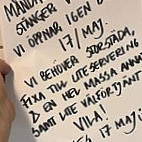 MÅNDAG
STÄNGER
VI ÖPPNAR IGEN
17/MAJ.
VI BEHÖVER STORSTÄDA,
FIXA TILL UTESERVERING
O EN HEL MASSA ANNAT
SAMT LITE VÄLFÖRTJÄNT
VILA!
17 MAJ